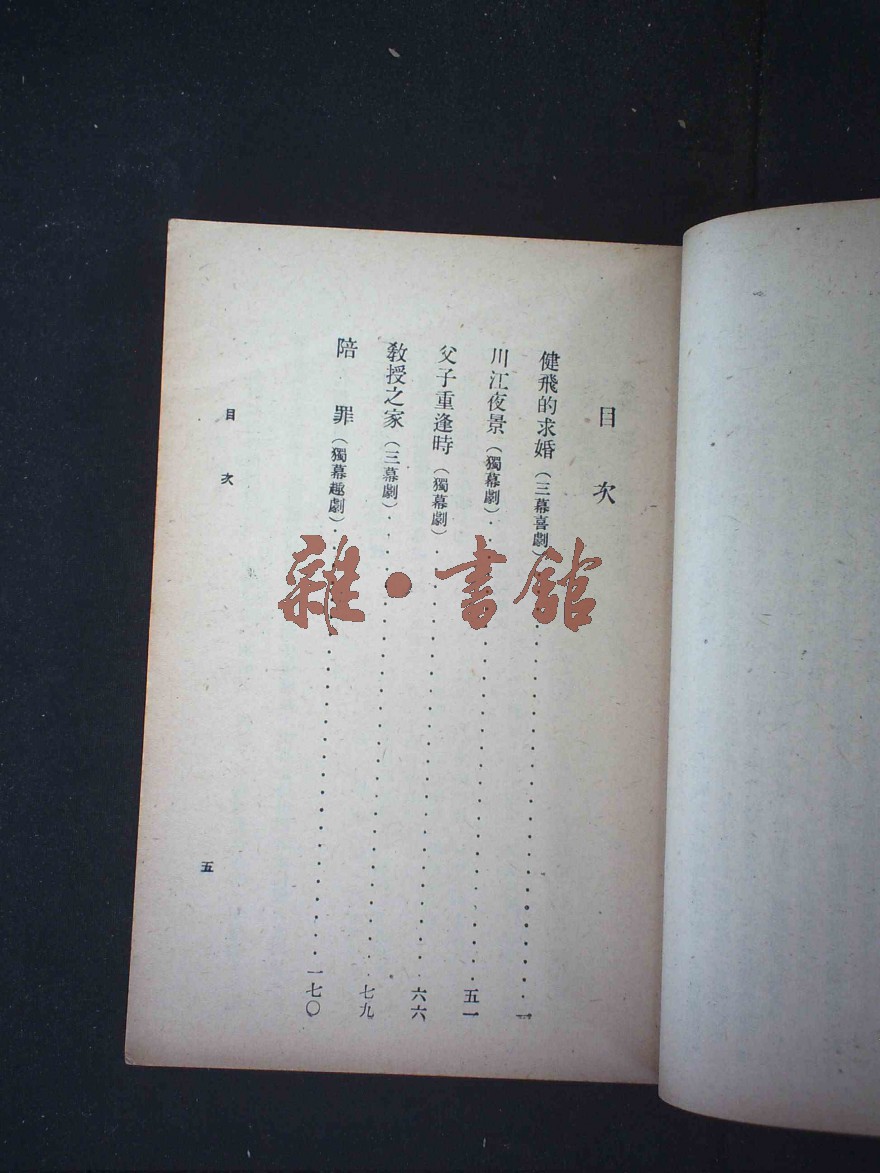 目次
健飛的求婚（三幕喜劇）一
川江夜景（獨幕劇）五一
父子重逢時（獨幕劇）六六
教授之家（三幕劇）七九
陪罪（獨幕趣劇）一七〇
目次
五
雜·書館